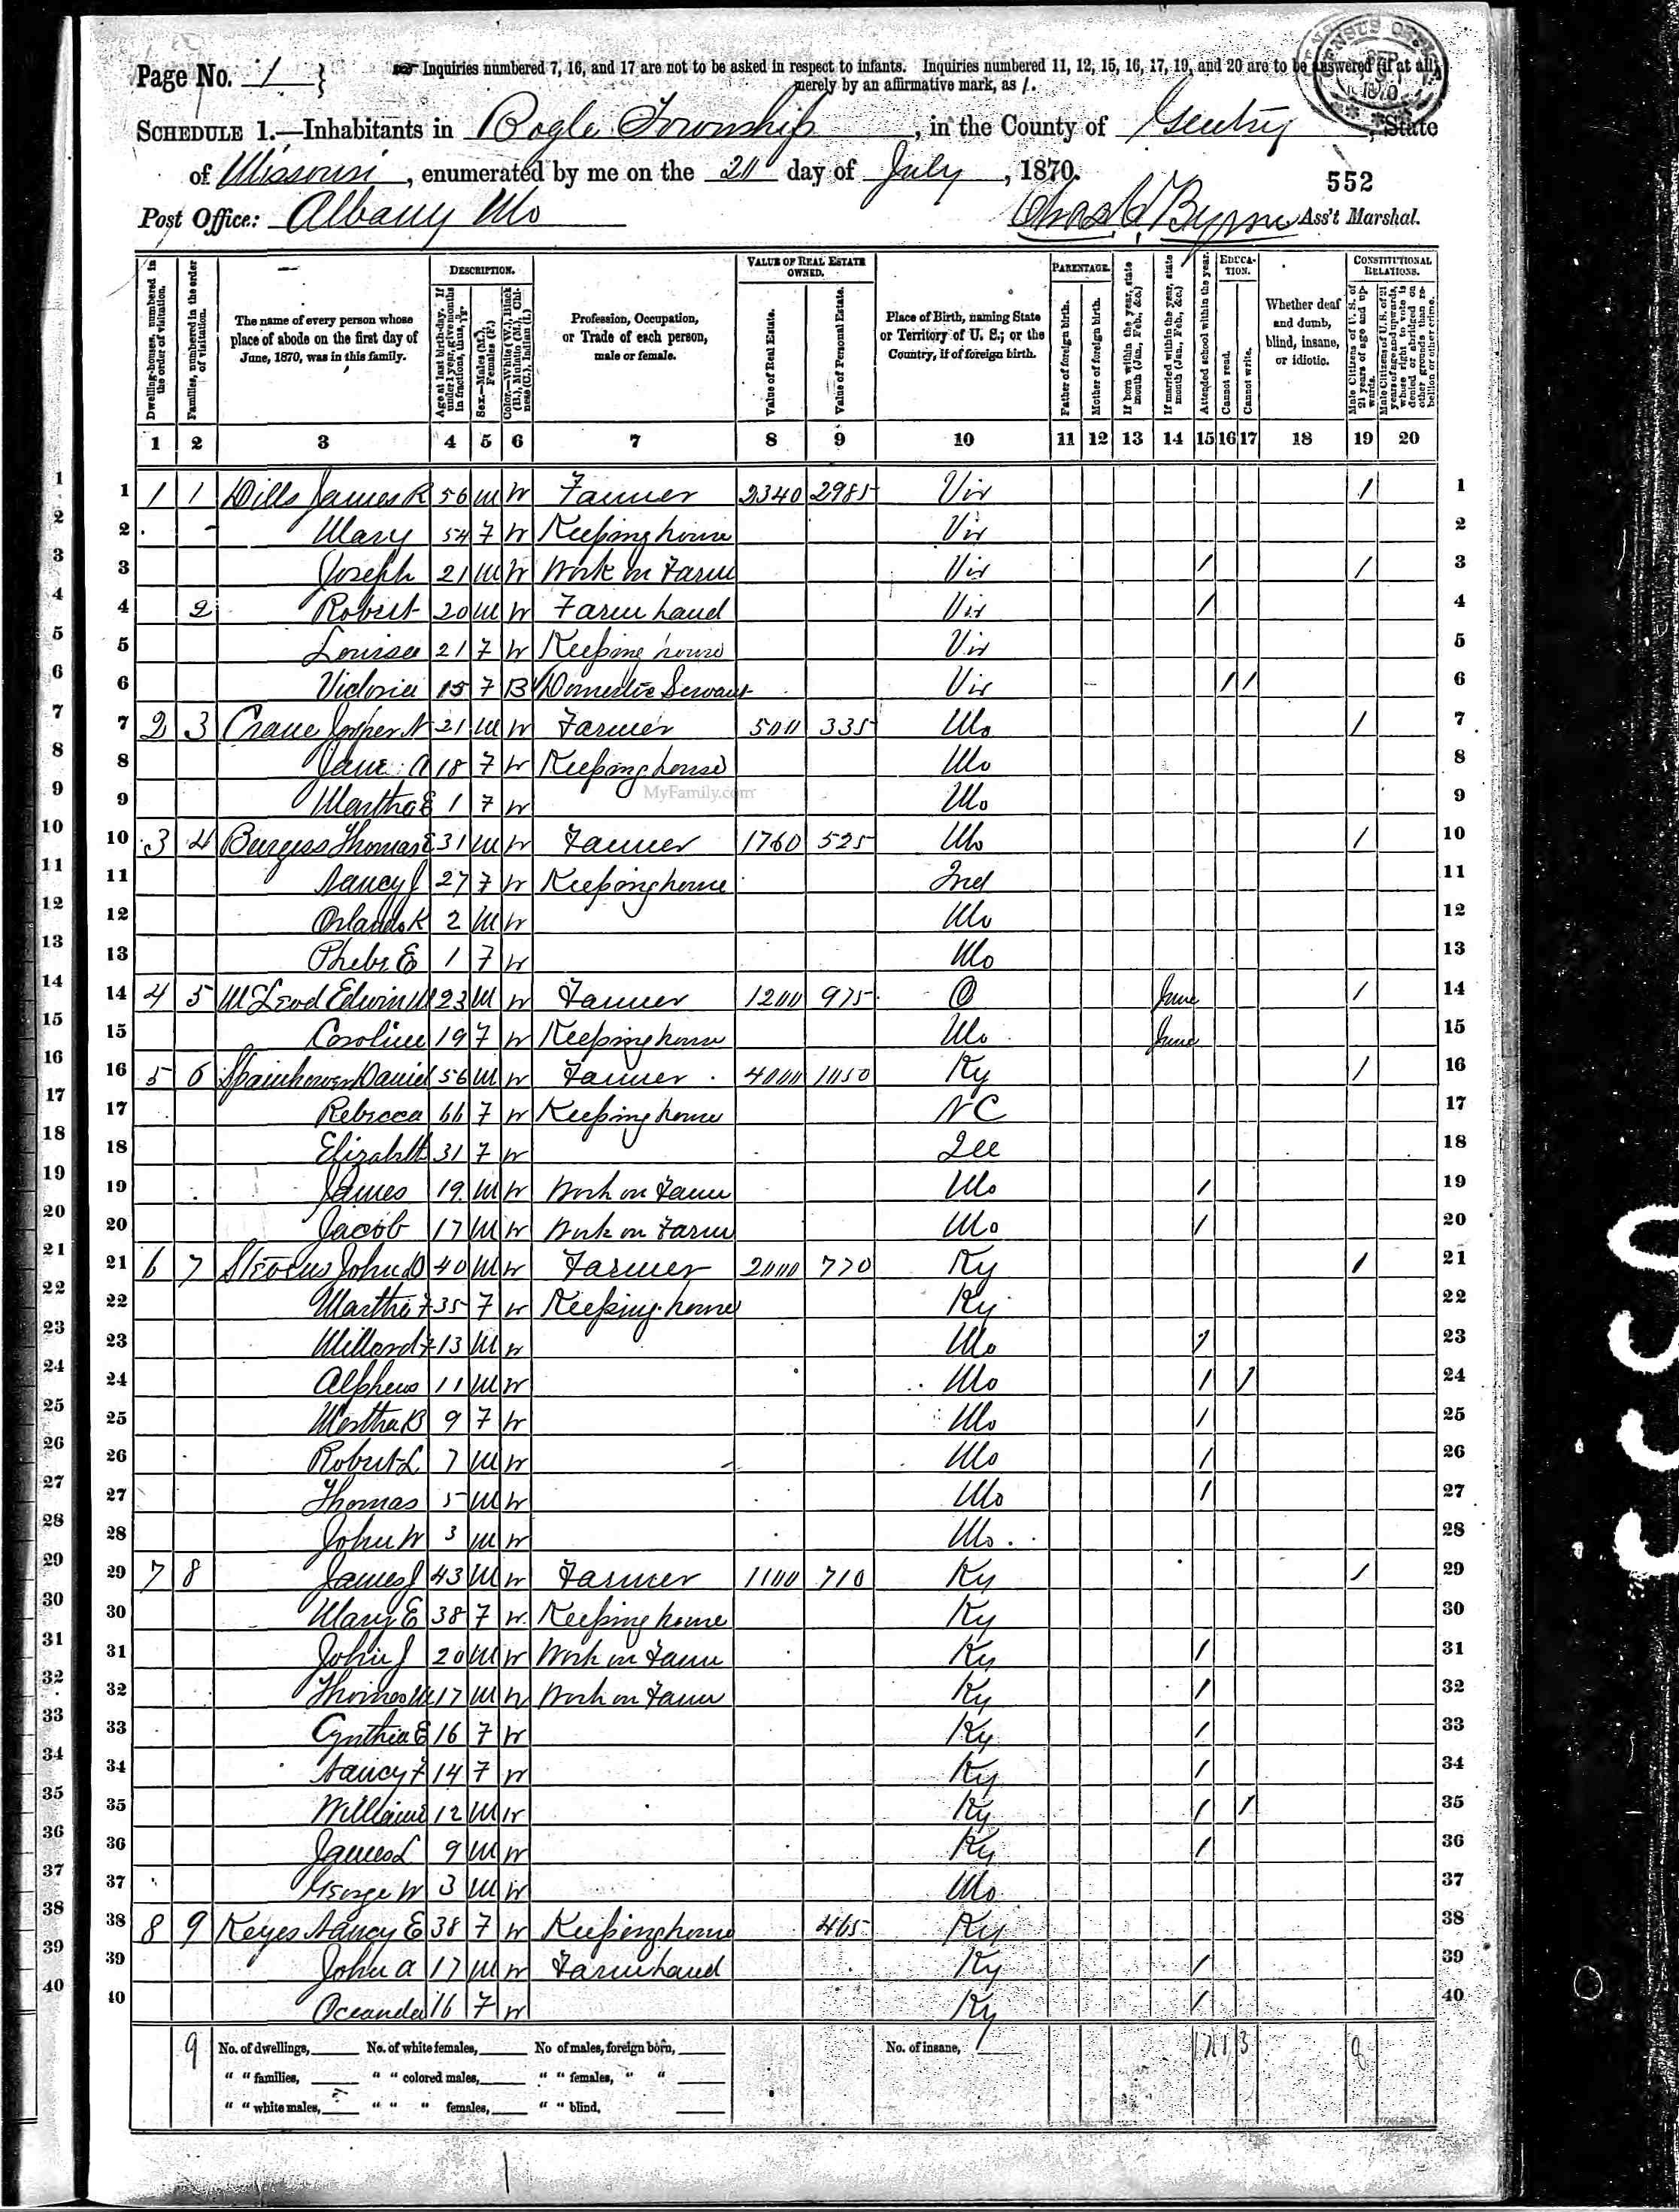 Page No. 1 }
Inquiries numbered 7, 16, and 17 are not to be asked in respect to infants. Inquiries numbered 11, 12, 15, 16, 17, 19, and 20 are to be answered (if at all)
merely by an affirmative mark, as /.
SCHEDULE 1.—Inhabitants in Bogle Township, in the County of Gentry, State
of Missouri, enumerated by me on the 20 day of July, 1870.
552
Post Office: Albany Mo Ass't Marshal.
DESCRIPTION. VALUE OF REAL ESTATE OWNED. PARENTAGE. EDUCATION. CONSTITUTIONAL RELATIONS.
Dwelling-houses, numbered in the order of visitation.
Families, numbered in the order of visitation.
The name of every person whose place of abode on the first day of June, 1870, was in this family.
Age at last birth-day. If under 1 year, give months in fractions, thus,
Sex.—Males (M.), Females (F.)
Color.—White (W.), Black (B.), Mulatto (M.), Chinese (C.), Indian (I.)
Profession, Occupation, or Trade of each person, male or female.
Value of Real Estate.
Value of Personal Estate.
Place of Birth, naming State or Territory of U. S.; or the Country, if of foreign birth.
Father of foreign birth.
Mother of foreign birth.
If born within the year, state month (Jan., Feb., &c.)
If married within the year, state month (Jan., Feb., &c.)
Attended school within the year.
Cannot read.
Cannot write.
Whether deaf and dumb, blind, insane, or idiotic.
Male Citizens of U. S. of 21 years of age and upwards.
Male Citizens of U. S. of 21 years of age and upwards, whose right to vote is denied or abridged on other grounds than rebellion or other crime.
1 2 3 4 5 6 7 8 9 10 11 12 13 14 15 16 17 18 19 20
1 1 1 Dills James R 56 M W Farmer 2340 2985 Vir / 1
2 Mary 54 F W Keeping house Vir 2
3 Joseph 21 M W Work on Farm Vir / / 3
4 2 Robert 20 M W Farm hand Vir / 4
5 Louisa 21 F W Keeping house Vir 5
6 Victoria 15 F B Domestic Servant Vir / / 6
7 2 3 Crane Jasper N 21 M W Farmer 500 335 Mo / 7
8 Jane A 18 F W Keeping house Mo 8
MyFamily.com
9 Martha E 1 F W Mo 9
10 3 4 Burgess Thomas E 31 M W Farmer 1760 525 Mo / 10
11 Nancy J 27 F W Keeping house Ind 11
12 Orlando K 2 M W Mo 12
13 Phebe E 1 F W Mo 13
14 4 5 McLeod Edwin M 23 M W Farmer 1200 975 O June / 14
15 Caroline 19 F W Keeping house Mo June 15
16 5 6 Spainhower Daniel 56 M W Farmer 4000 1050 Ky / 16
17 Rebecca 66 F W Keeping house NC 17
18 Elizabeth 31 F W Ill 18
19 James 19 M W Work on Farm Mo / 19
20 Jacob 17 M W Work on Farm Mo / 20
21 6 7 Stevens John D 40 M W Farmer 2000 770 Ky / 21
22 Martha F 35 F W Keeping house Ky 22
23 Millard F 13 M W Mo / 23
24 Alpheus 11 M W Mo / / 24
25 Martha B 9 F W Mo / 25
26 Robert L 7 M W Mo / 26
27 Thomas 5 M W Mo / 27
28 John W 3 M W Mo 28
29 7 8 James J 43 M W Farmer 1100 710 Ky / 29
30 Mary E 38 F W Keeping house Ky 30
31 John J 20 M W Work on Farm Ky / 31
32 Thomas M 17 M W Work on Farm Ky / 32
33 Cynthia E 16 F W Ky / 33
34 Nancy F 14 F W Ky / 34
35 William 12 M W Ky / / 35
36 James L 9 M W Ky / 36
37 George W 3 M W Mo 37
38 8 9 Keyes Nancy E 38 F W Keeping house 465 Ky 38
39 John A 17 M W Farm hand Ky / 39
40 Oceanda 16 F W Ky / 40
9 No. of dwellings, No. of white females, No of males, foreign born, No. of insane, 17 1 3 8
" " families, " " colored males, " " females, " "
" " white males, " " " females, " " blind,